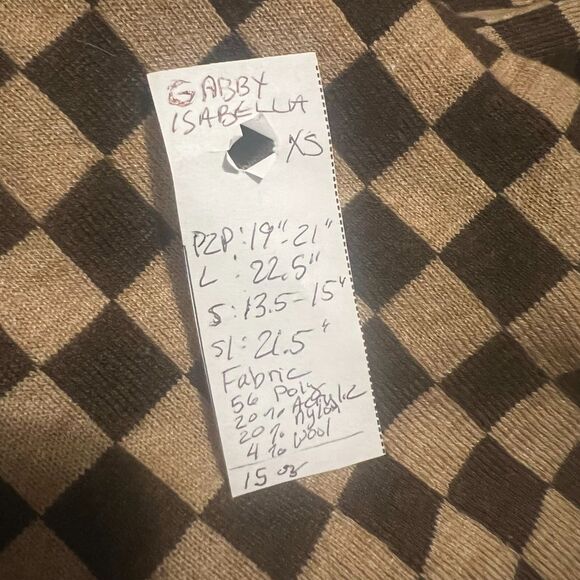 GABBY
ISABELLA
XS
P2P: 19"-21"
L : 22.5"
S: 13.5-15"
Sl: 21.5"
Fabric
56 Poly
20% Acrylic
20% nylon
4% wool
15 oz